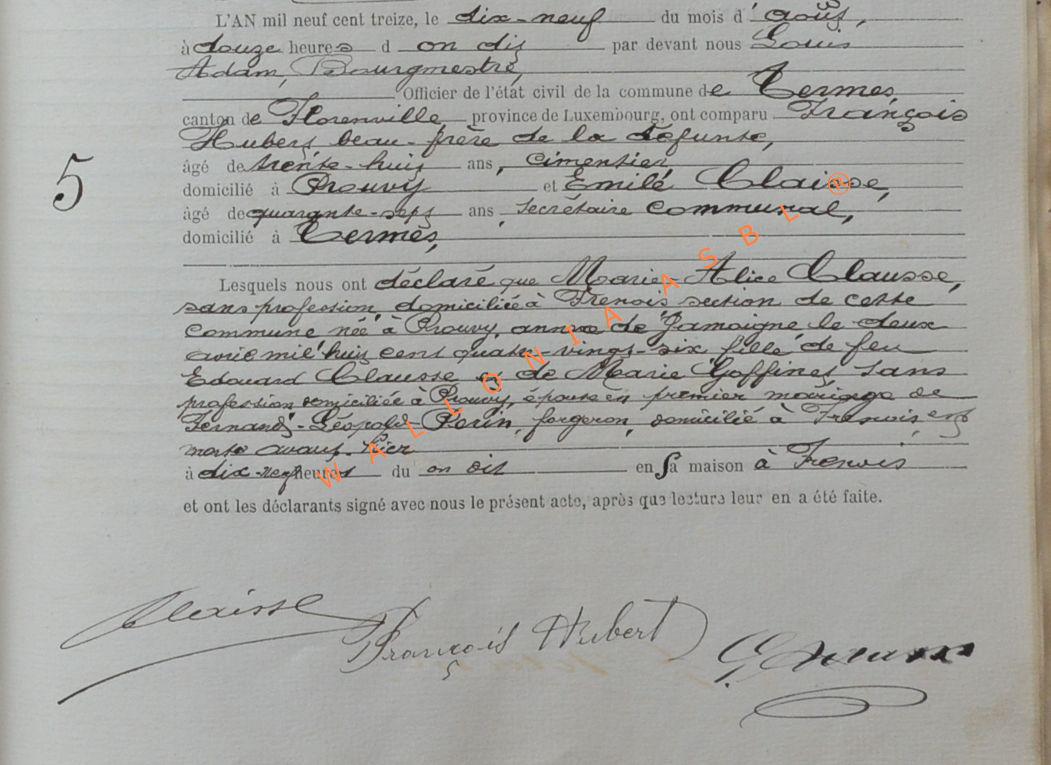 L'AN mil neuf cent treize, le dix-neuf du mois d' août,
à douze heures d on dis par devant nous Louis
Adam, Bourgmestre,
Officier de l'état civil de la commune de Termes
canton de Florenville province de Luxembourg, ont comparu François
Hubert beau-frère de la défunte,
âgé de trente-huit ans, cimentier
domicilié à Prouvy et Emile Claisse,
âgé de quarante-sept ans, secrétaire communal,
domicilié à Termes,
Lesquels nous ont déclaré que Marie-Alice Clausse,
sans profession, domiciliée à Frenois section de cette
5
commune née à Prouvy, annexe de Jamoigne le deux
avril mil huit cent quatre-vingt-six fille de feu
Edouard Clausse et de Marie Goffinet sans
profession domiciliée à Prouvy, épouse en premier mariage de
Fernand-Léopold forgeron, domicilié à Frenois, est
morte avant-hier
à dix-neuf heures du on dit en sa maison à Frenois
et ont les déclarants signé avec nous le présent acte, après que lecture leur en a été faite.
WALLONIA ASBL @
Claisse
François Hubert